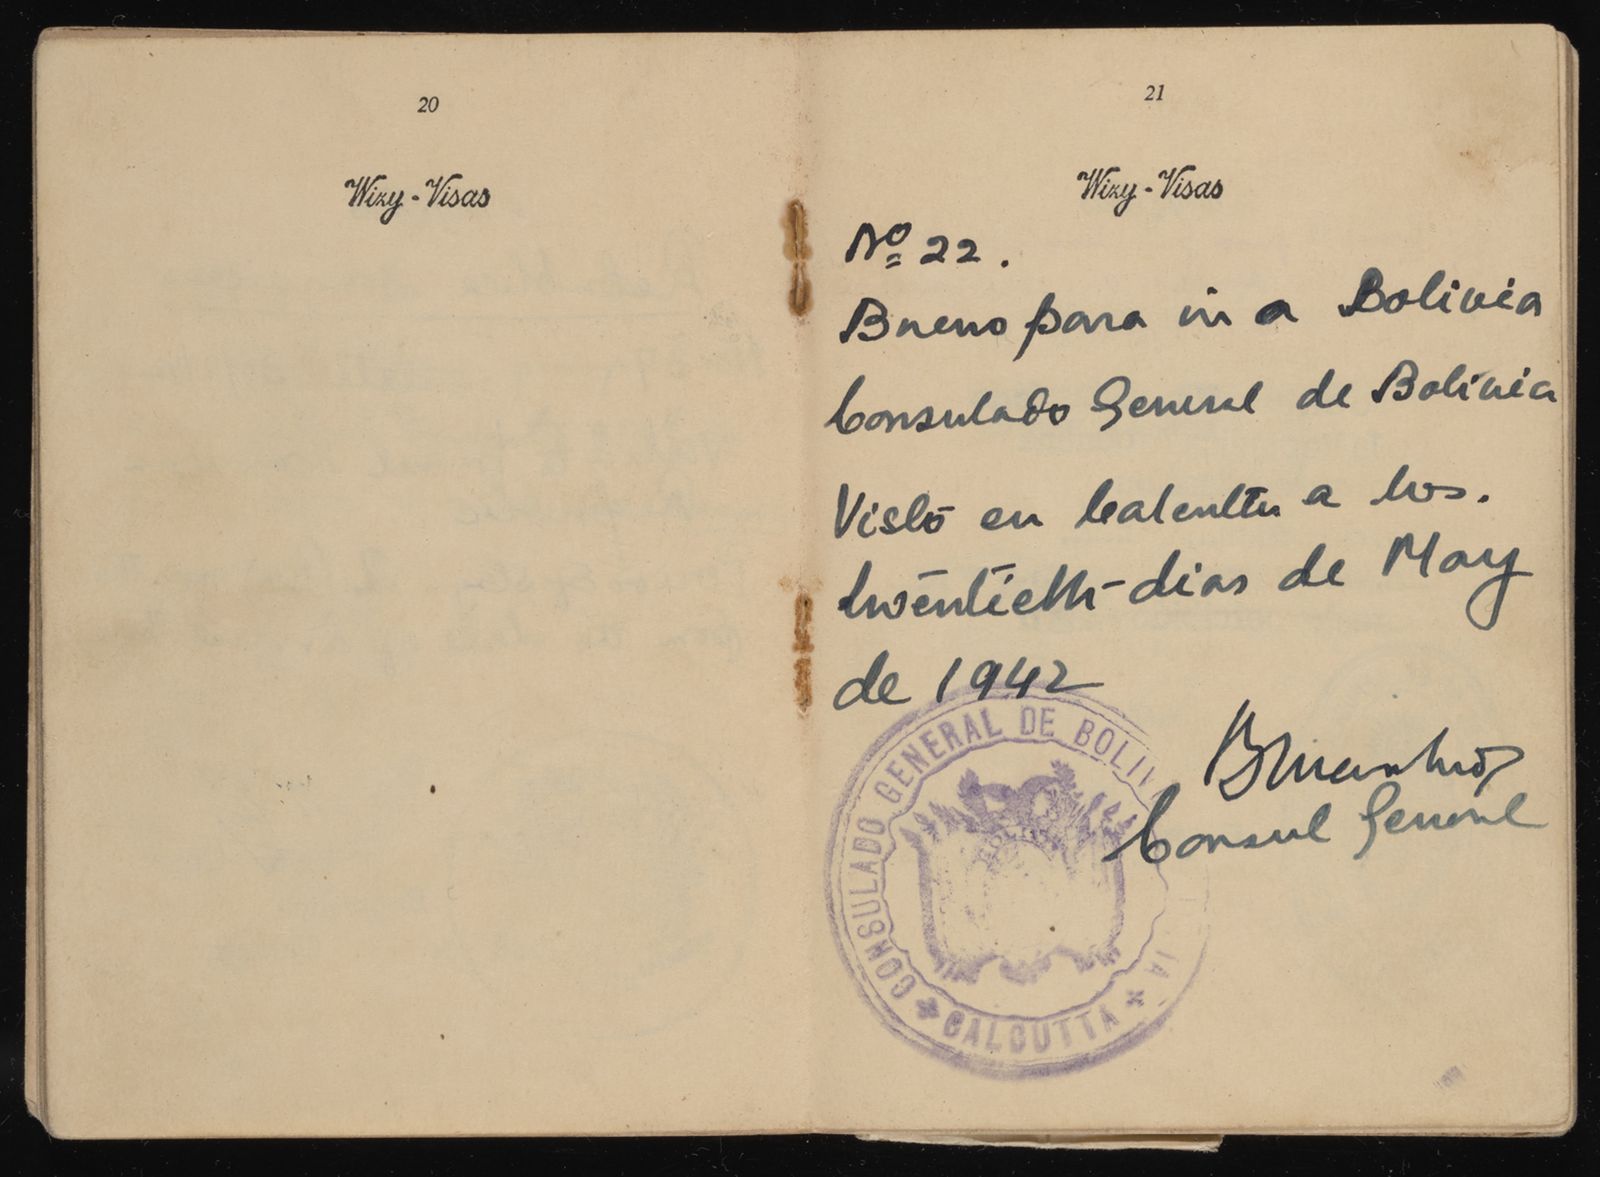 20
Wizy-Visas
21
Wizy-Visas
Nº 22.
Bueno para in a Bolivia
Consulado General de Bolivia
Visto en Calcutta a los.
twentieth dias de May
de 1942
Consul General
CONSULADO GENERAL DE BOLIVIA
CALCUTTA